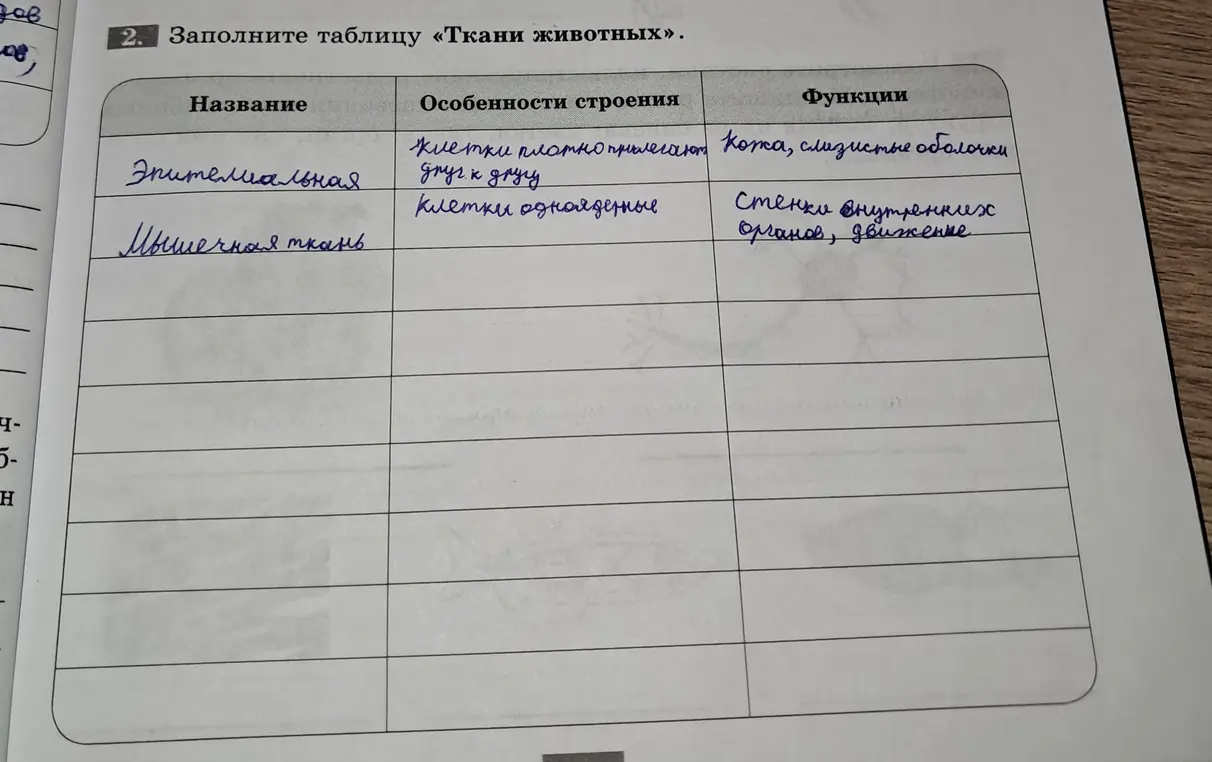 2. Заполните таблицу «Ткани животных».
Название Особенности строения Функции
Эпителиальная
клетки плотно прилегают
друг к другу
Кожа, слизистые оболочки
Мышечная ткань
клетки одноядерные
Стенки внутренних
органов, движение
ов,
ч-
б-
н